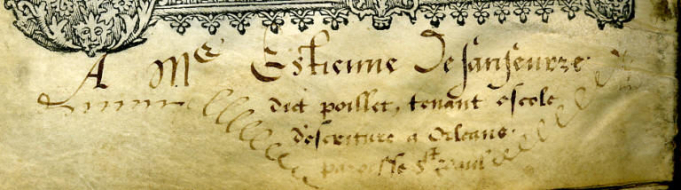 A Me Estienne De Jangeurze
dict poillet, tenant escole
d'escriture a Orleans.
paroisse St Paul